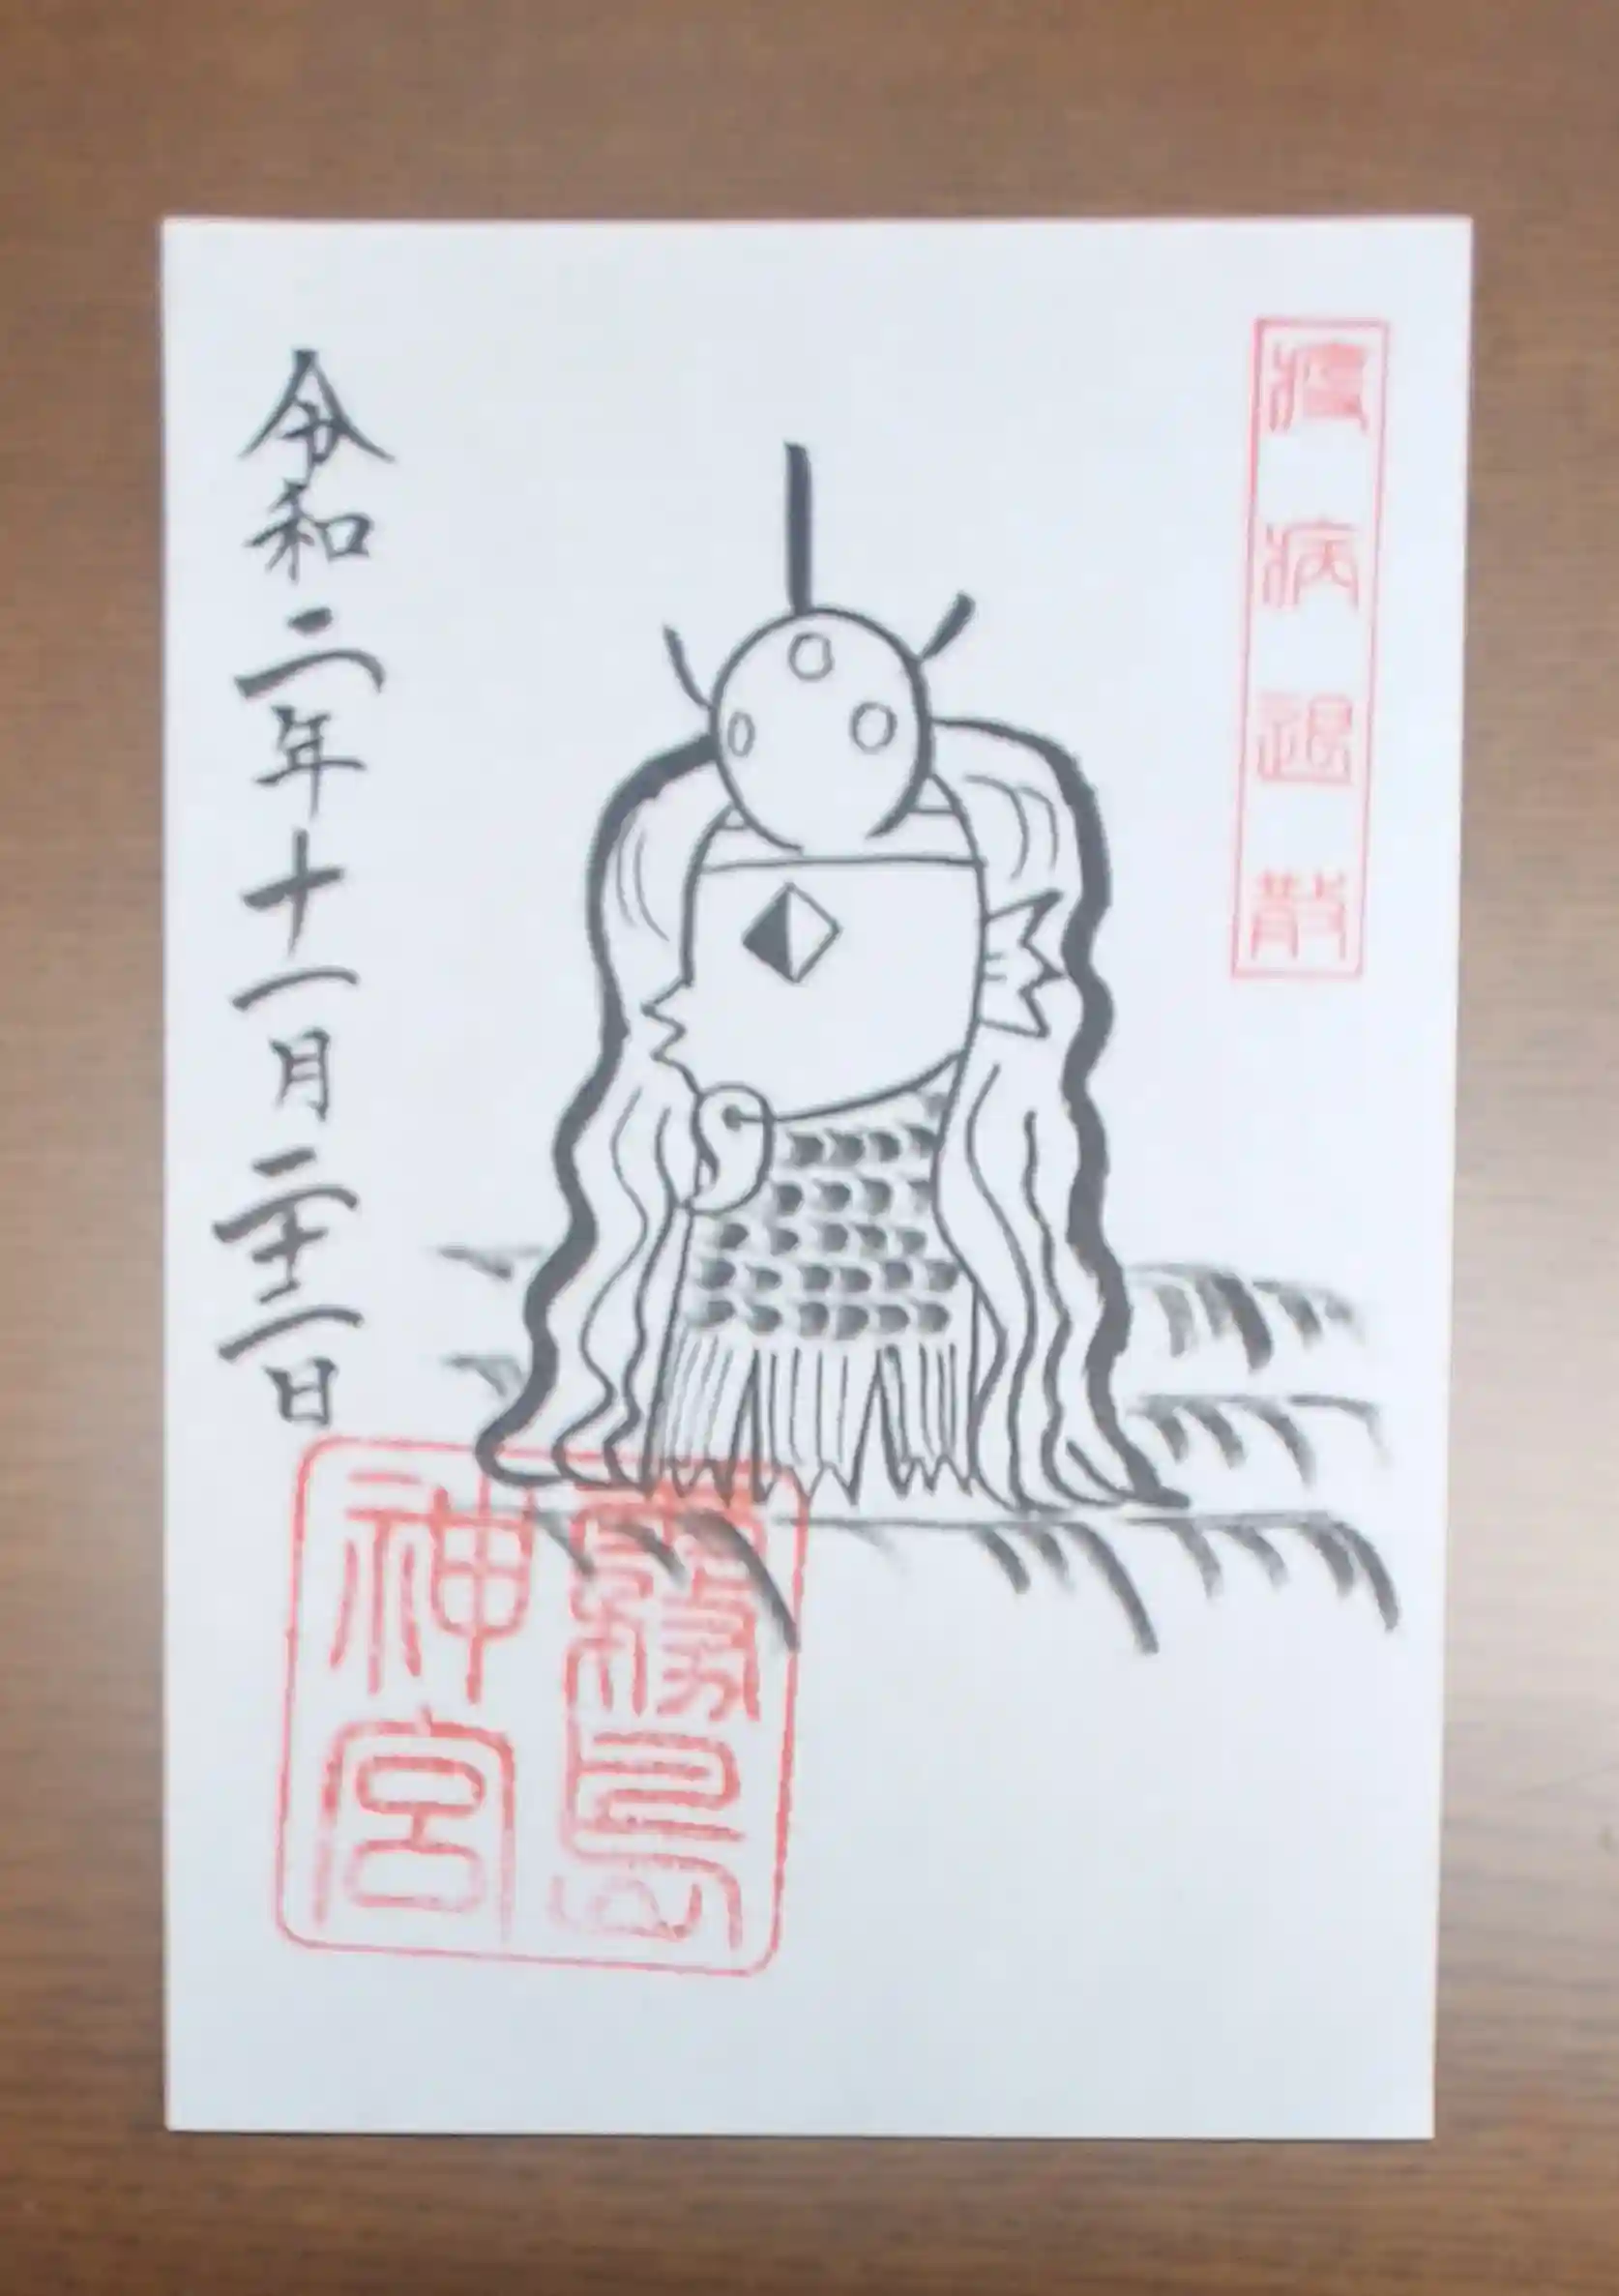 疫病退散
令和二年十一月二十二日
霧島
神宮